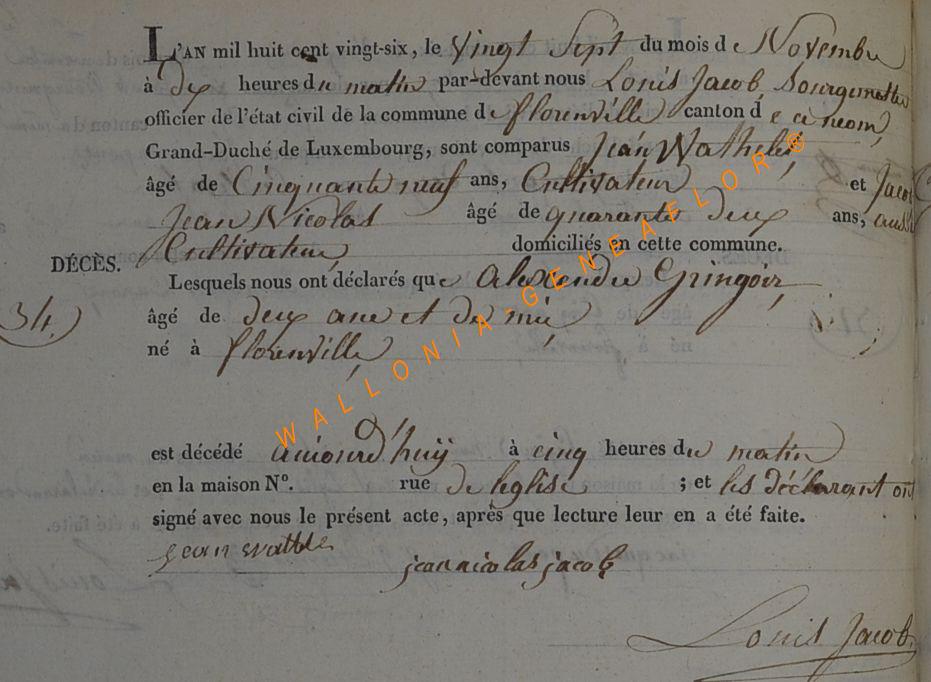 L'AN mil huit cent vingt-six, le vingt Sept du mois de Novembre
à dix heures du matin par-devant nous Louis Jacob, Bourgmestre
officier de l'état civil de la commune de florenville canton de ce nom,
Grand-Duché de Luxembourg, sont comparus Jean Wathelé,
âgé de Cinquante neuf ans, Cultivateur et Jacob
Jean Nicolas âgé de quarante deux ans, aussi
Cultivateur, domiciliés en cette commune.
DÉCÈS.
Lesquels nous ont déclarés que alexendre Gringoir,
34
âgé de deux ans et de mie
né à florenville,
est décédé aujourd'huÿ à cinq heures du matin
en la maison N°. rue de leglise ; et les déclarant ont
signé avec nous le présent acte, après que lecture leur en a été faite.
jean
jean nicolas jacob
Louis Jacob
WALLONIA-GENEAFLOR®